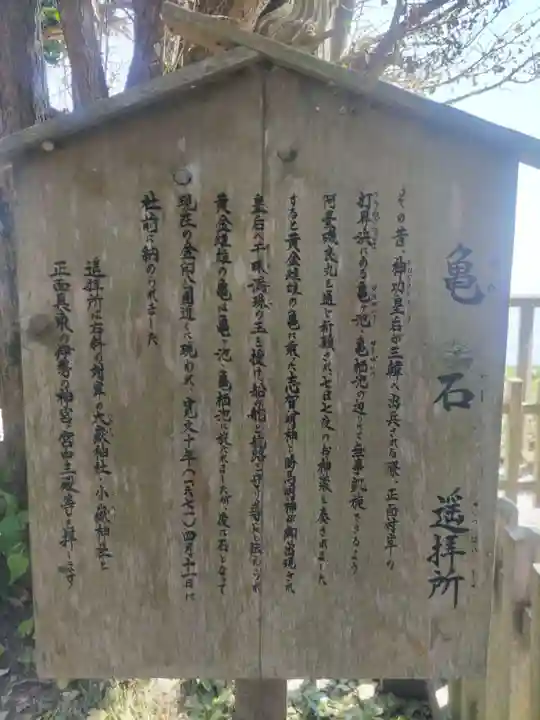 亀石 遥拝所
その昔、神功皇后が三韓へ出兵される際、正面対岸の
打昇浜にある亀ヶ池・亀栖池の辺りにて無事凱旋できるよう
阿曇磯良丸を通じ祈願され七日七夜のお神楽を奏されました
すると黄金雌雄の亀に乗った志賀明神と勝馬明神が御出現され
皇后へ干珠満珠の玉を授け船の舵と航路を守り導いたと伝えられ
黄金雌雄の亀は亀ヶ池・亀栖池に放たれましたが、後に石となって
現在の金印公園辺りに現われ、寛文十年(一六七一)四月十一日に
社前に納められました
遥拝所は右斜め対岸の大嶽神社・小嶽神社と
正面真東の伊勢の神宮・宮中三殿等を拝します